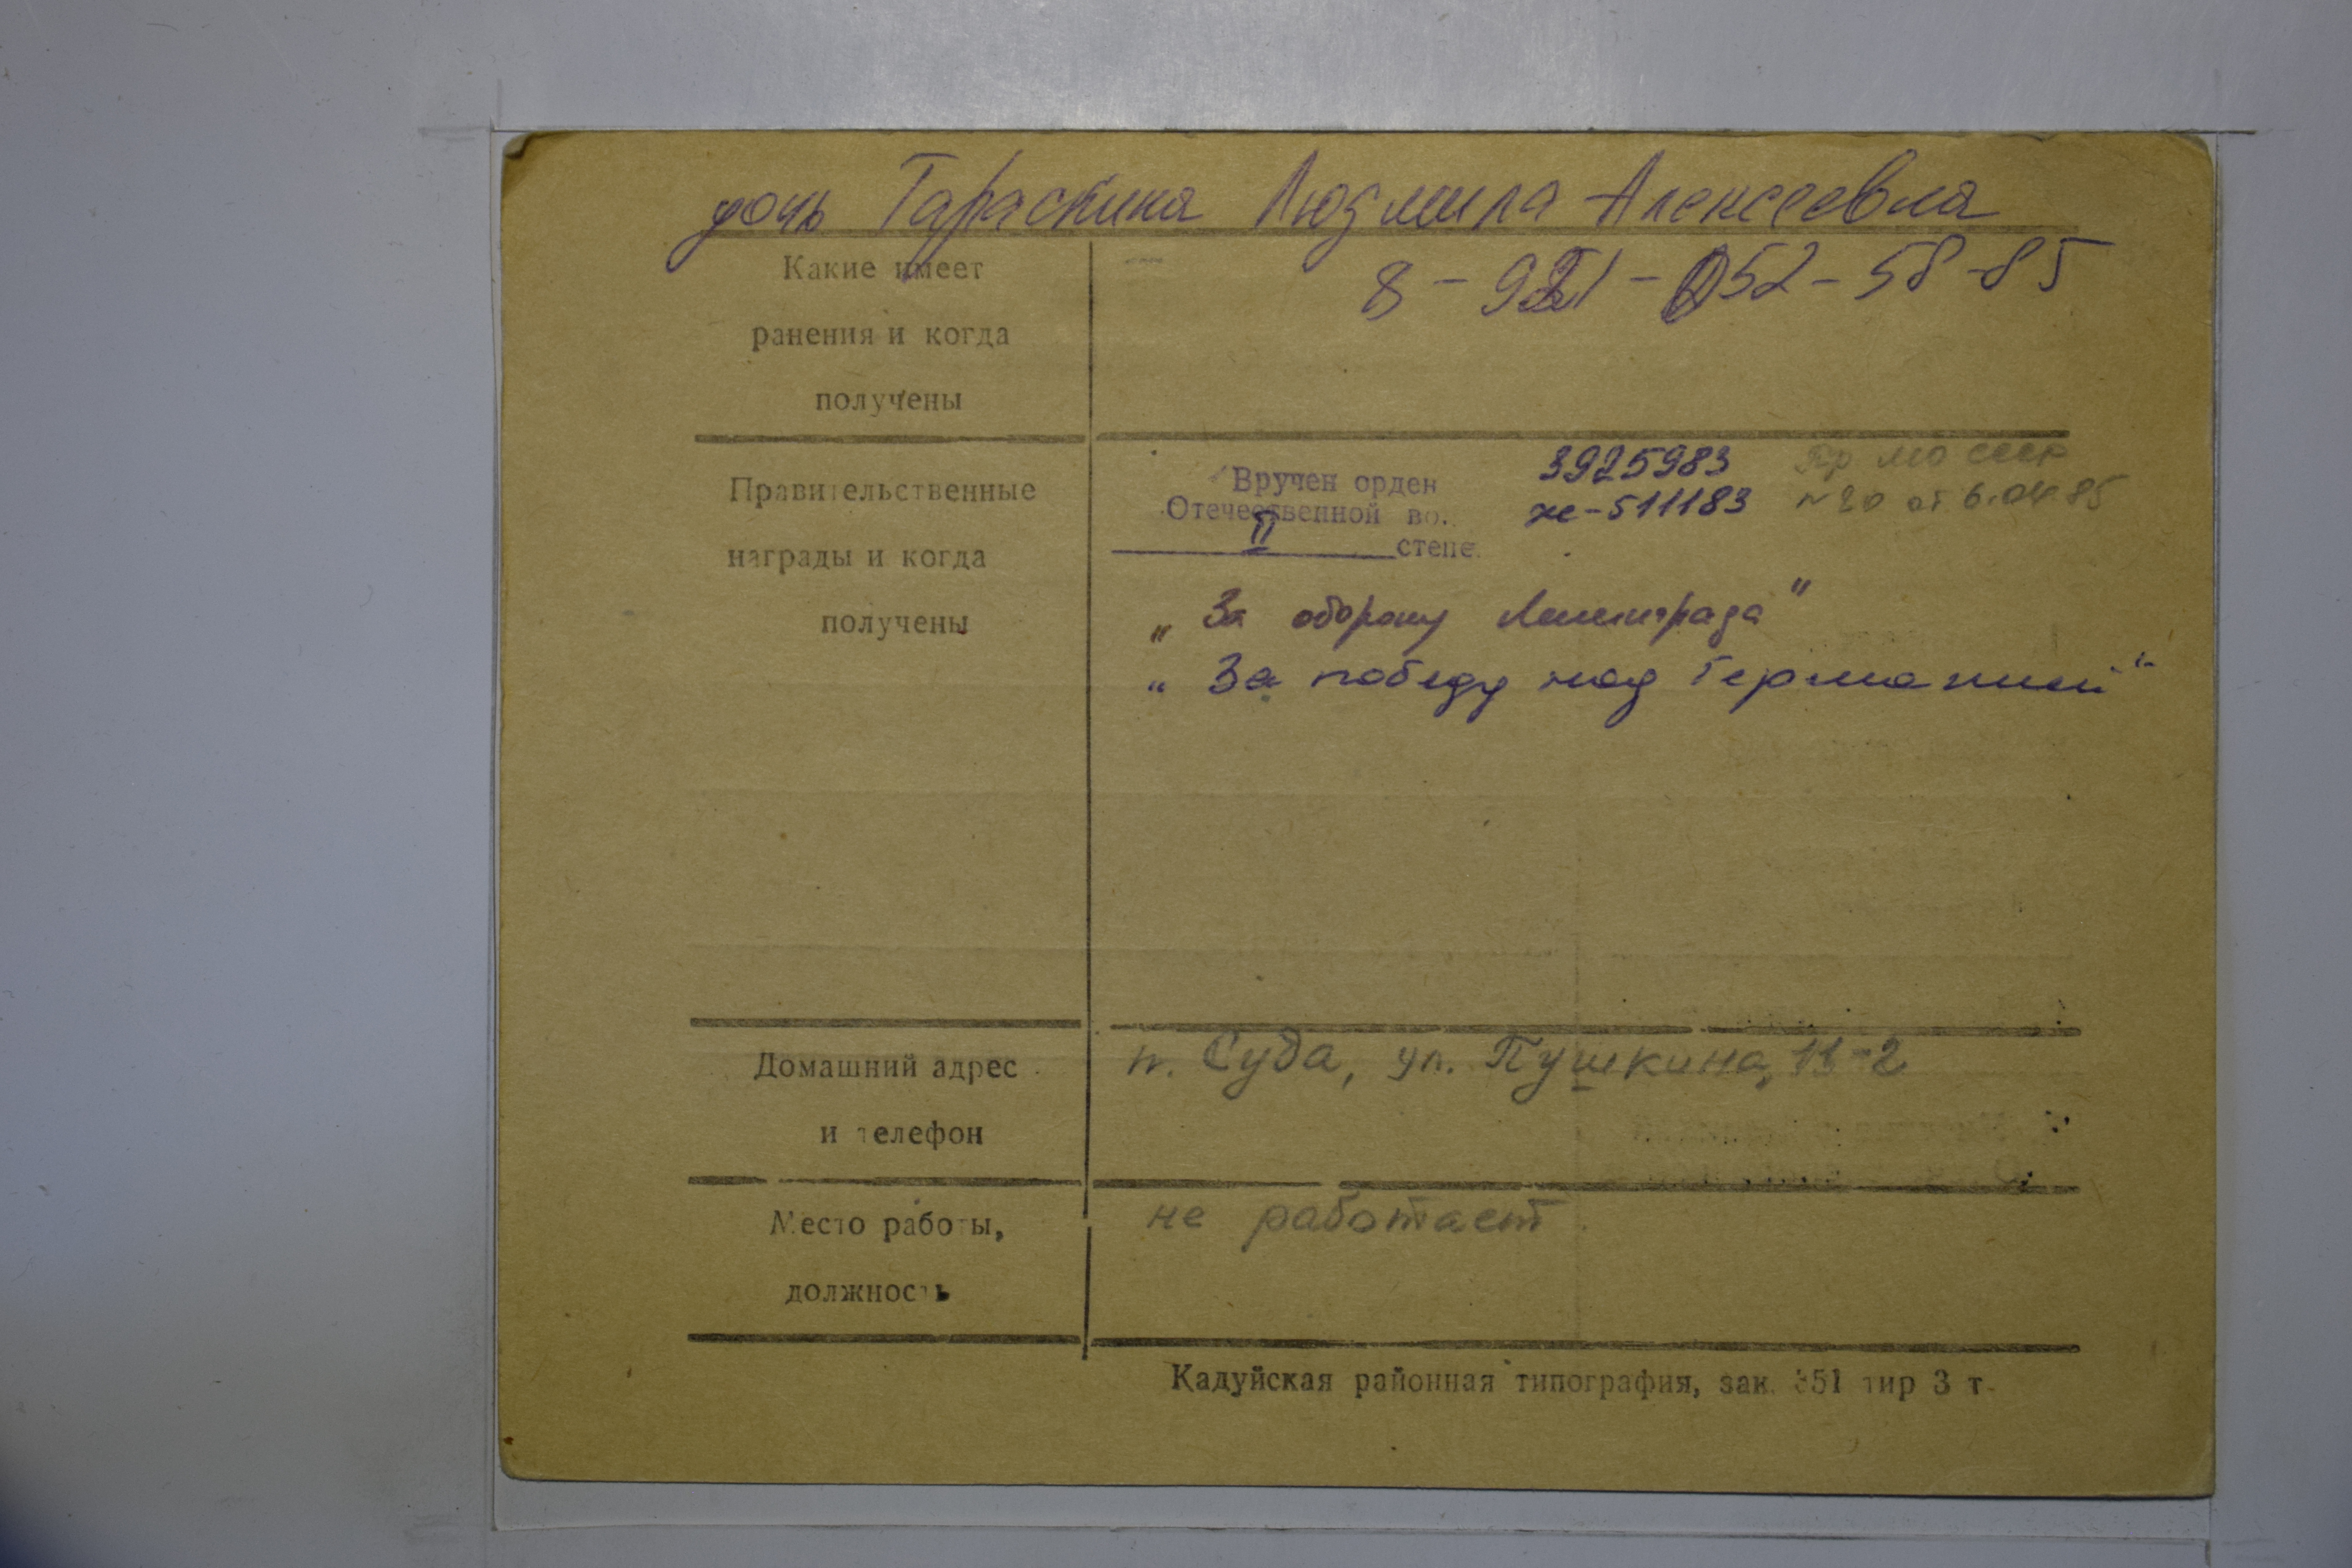 дочь Тарастина Людмила Алексеевна
Какие имеет
ранения и когда
получены
8-921-052-58-85
Правительственные
награды и когда
получены
Вручен орден
Отечественной во.
II степе.
3925983
же-511183
Пр МО СССР
N 20 от 6.04 85
„За оборону Ленинграда"
„За победу над Германией"
Домашний адрес
и телефон
п. Суда, ул. Пушкина, 11-2
Место работы,
должность
не работает
Кадуйская районная типография, зак. 351 тир 3 т.